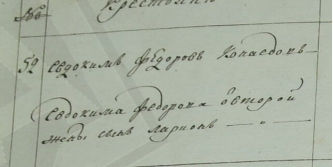 No
Крестьяне
52 Евдокимъ Федоровъ
Евдокима Федорова второй
жены сынъ Ларионъ